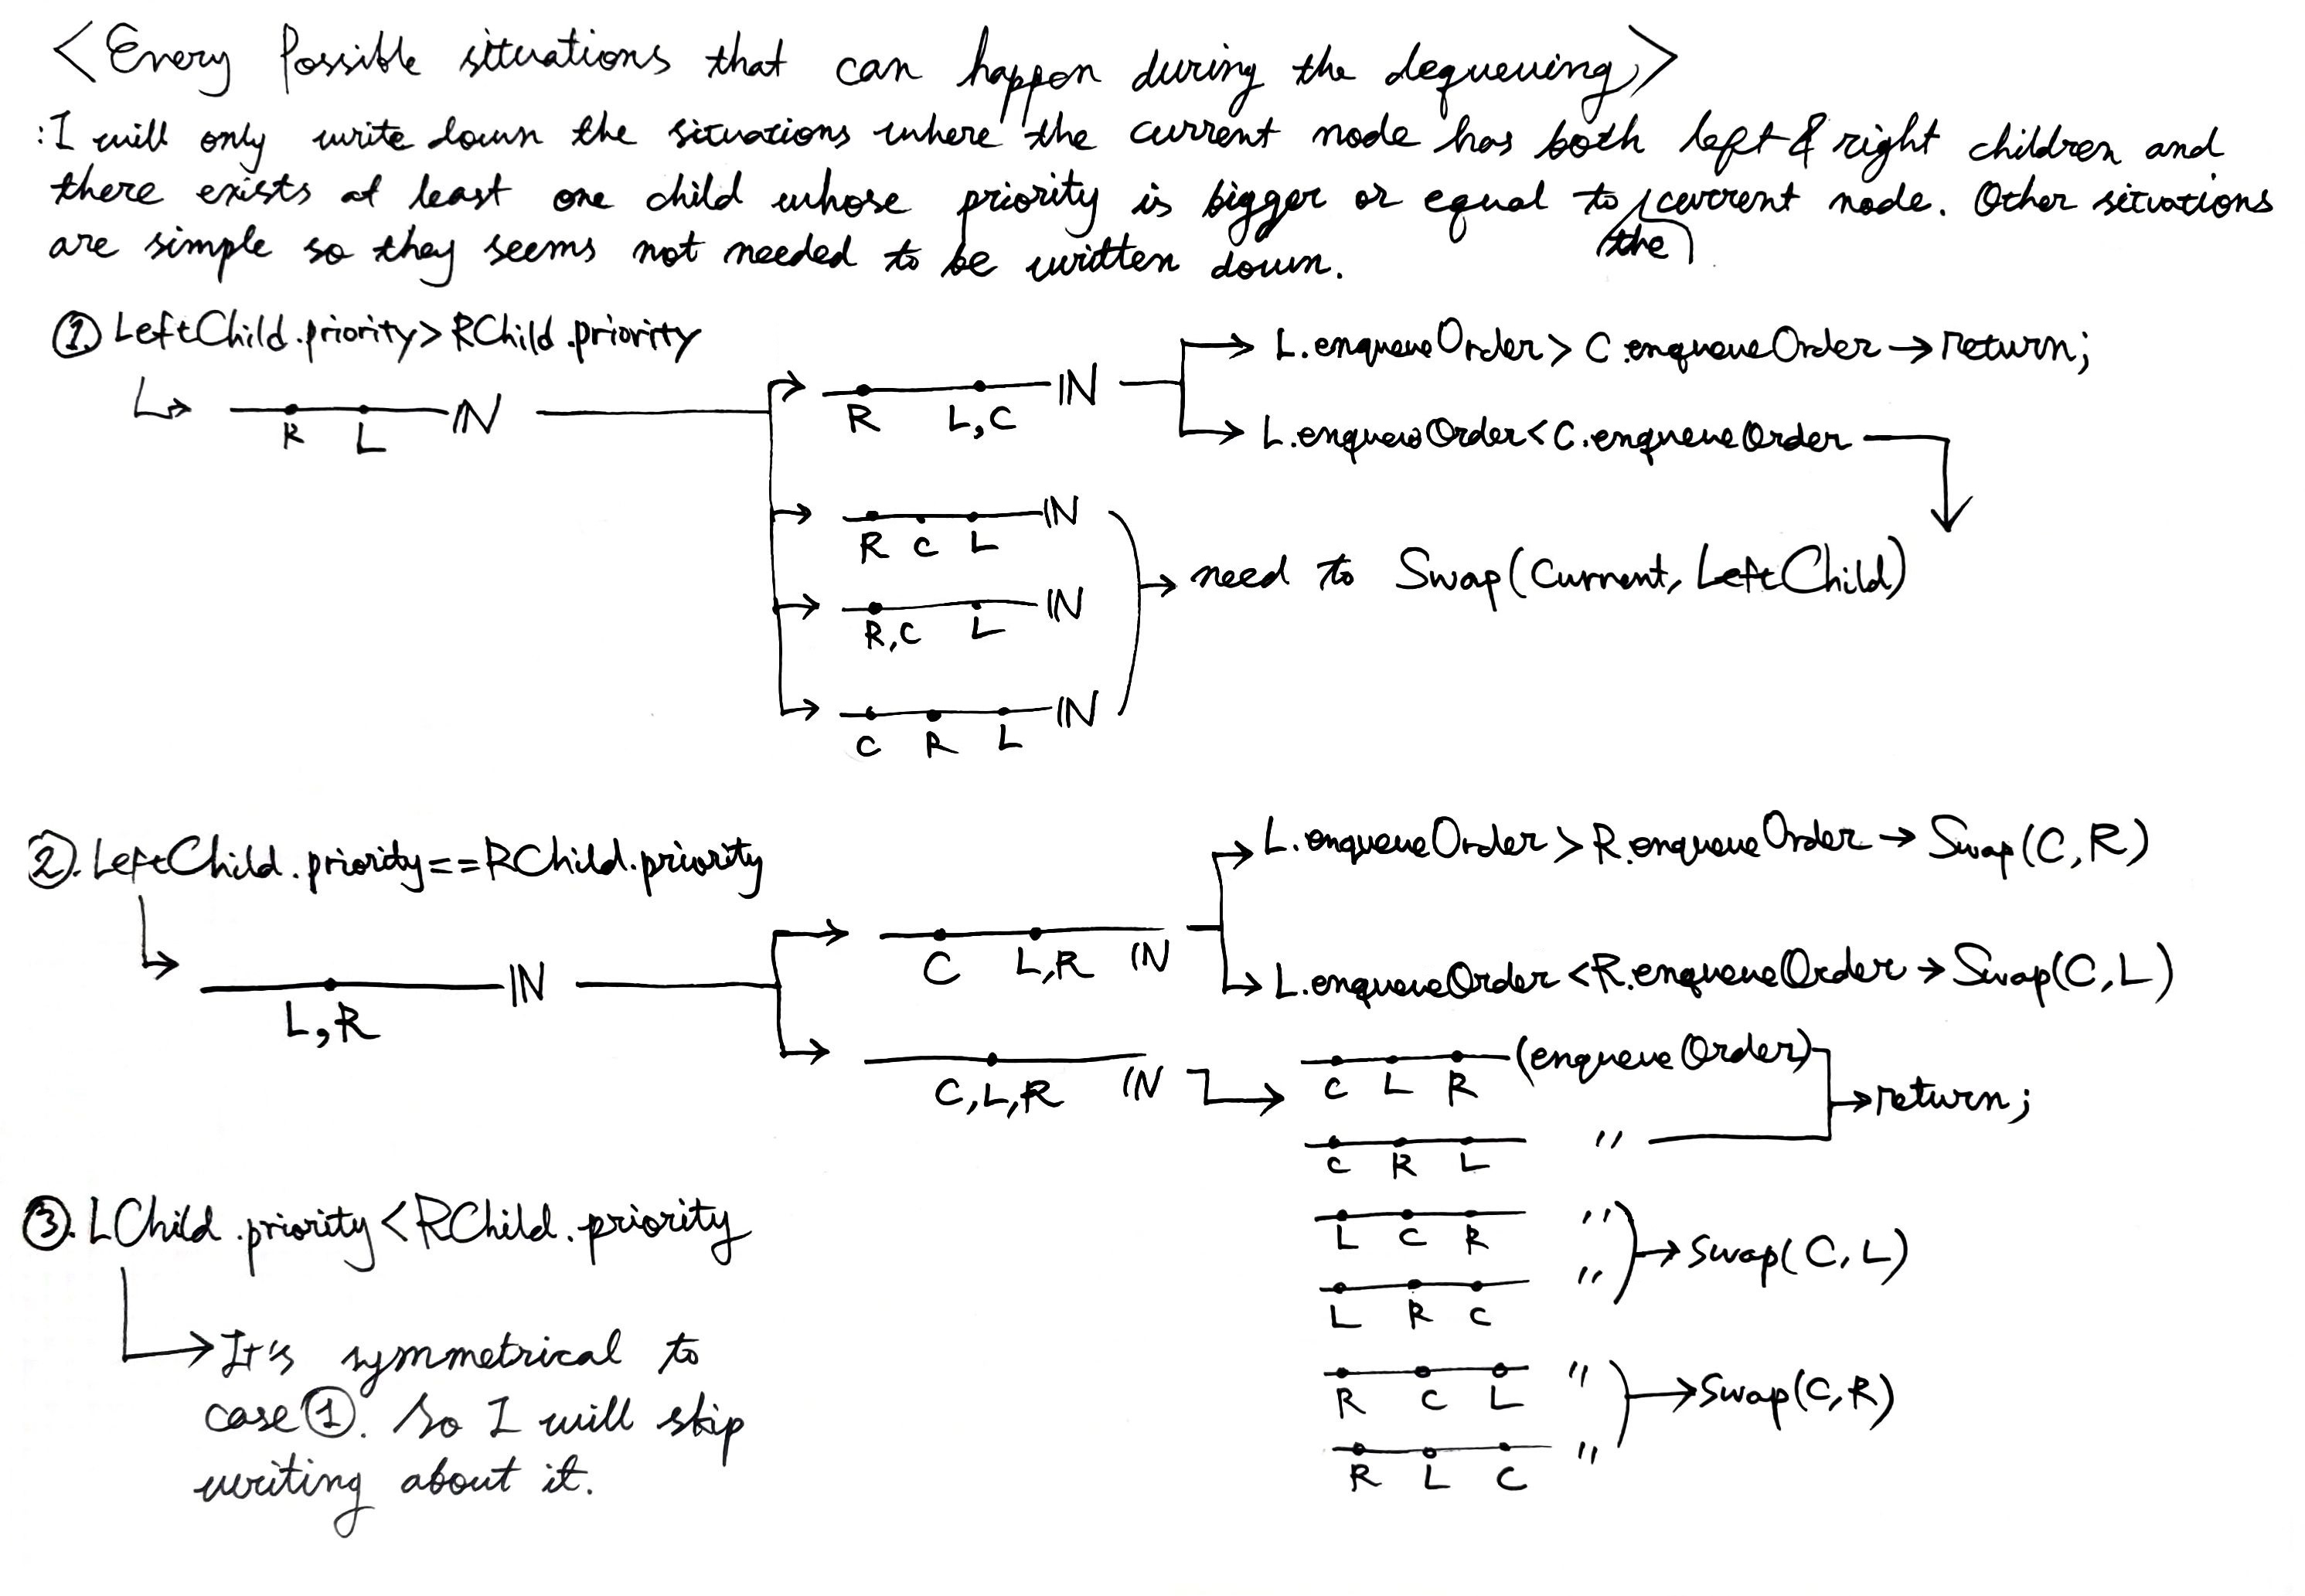 <Every Possible situations that can happen during the dequeuing>
:I will only write down the situations where the current node has both left & right children and
there exists at least one child whose priority is bigger or equal to the current node. Other situations
are simple so they seems not needed to be written down.
① LeftChild.priority>RChild.priority
R L ℕ
R L,C ℕ
L.enqueueOrder> C.enqueueOrder → return;
L.enqueueOrder<C.enqueueOrder
R C L ℕ
R,C L ℕ
C R L ℕ
→ need to Swap(Current, LeftChild)
②. LeftChild.priority==RChild.priority
L,R ℕ
C L,R ℕ
L.enqueueOrder > R.enqueueOrder → Swap(C,R)
L.enqueueOrder <R.enqueueOrder → Swap(C,L)
C,L,R ℕ
C L R (enqueueOrder)
C R L "
→return;
L C R "
L R C "
→Swap(C,L)
R C L "
R L C "
→Swap(C,R)
③. LChild.priority<RChild.priority
→It's symmetrical to
case①. So I will skip
writing about it.